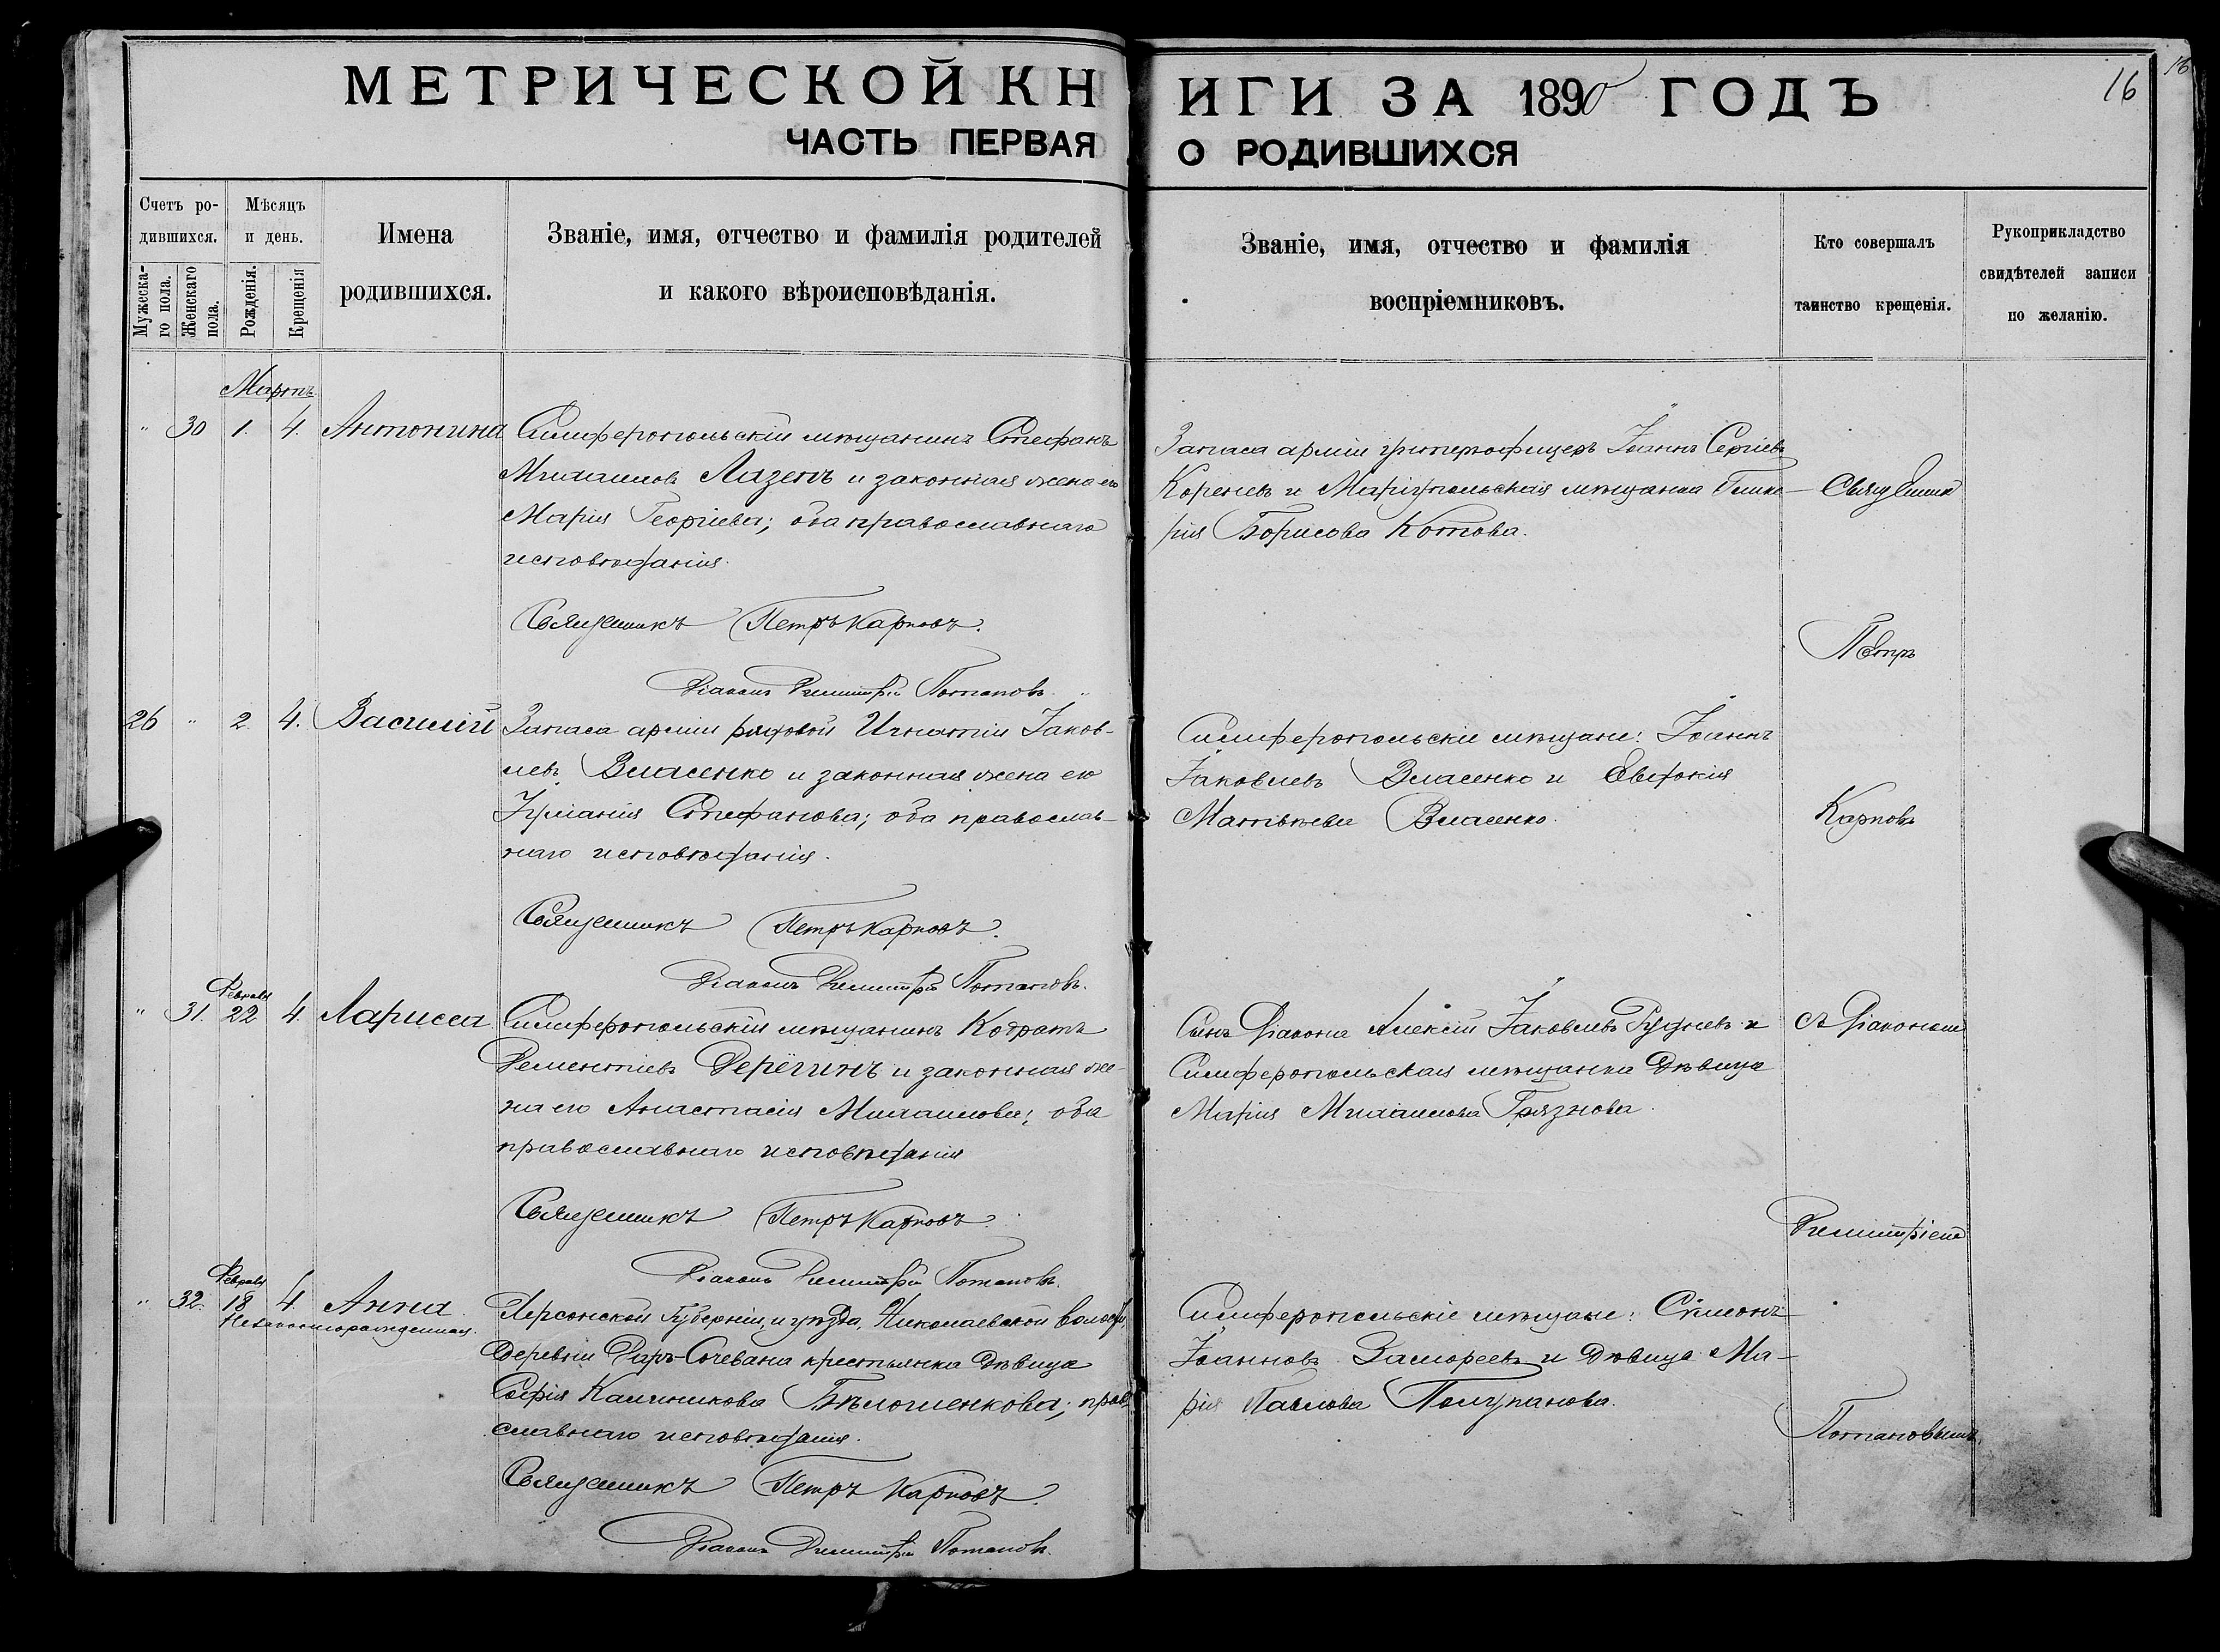 МЕТРИЧЕСКОЙ КНИГИ ЗА 1890 ГОДЪ
16
16
ЧАСТЬ ПЕРВАЯ О РОДИВШИХСЯ
Счетъ родившихся.
Мужескаго пола.
Женскаго пола.
Мѣсяцъ и день.
Рожденія.
Крещенія
Имена
родившихся.
Званіе, имя, отчество и фамилія родителей
и какого вѣроисповѣданія.
Званіе, имя, отчество и фамилія
воспріемниковъ.
Кто совершалъ
таинство крещенія.
Рукоприкладство
свидѣтелей записи
по желанію.
Мартъ
" 30 1. 4. Антонина
Симферопольскій мѣщанинъ Стефанъ
Михаиловъ Лазепъ и законная жена его
Марія Георгіева; оба православнаго
исповѣданія.
Священникъ Петръ Карповъ.
Діаконъ Димитрій Потаповъ.
Запаса арміи унтерофицеръ Іоаннъ Сергіевъ
Кореневъ и Маріупольская мѣщанка Глике-
рія Борисова Котова.
26 " 2 4. Василій
Запаса арміи рядовой Игнатій Іаков-
левъ Власенко и законная жена его
Іуліанія Стефанова; оба православ-
наго исповѣданія.
Священникъ Петръ Карповъ.
Діаконъ Димитрій Потаповъ.
Симферопольскіе мѣщане: Іоаннъ
Іаковлевъ Власенко и Евдокія
Матвѣева Власенко.
Февраля
" 31. 22 4. Ларисса
Симферопольскій мѣщанинъ Кодратъ
Дементіевъ Дерёгинъ и законная же-
на его Анастасія Михаилова; оба
православнаго исповѣданія
Священникъ Петръ Карповъ.
Діаконъ Димитрій Потаповъ.
Сынъ Діакона Алексій Іаковлевъ Рудневъ и
Симферопольская мѣщанка дѣвица
Марія Михаилова Грязнова.
Февраля
" 32. 18 4. Анна
Незаконнорожденная.
Херсонской Губерніи, и уѣзда, Николаевской волости,
деревни крестьянка дѣвица
Софія Калинникова Бѣлошенкова; право
славнаго исповѣданія.
Священникъ Петръ Карповъ.
Діаконъ Димитрій Потаповъ.
Симферопольскіе мѣщане: Сѵмеонъ
Іоанновъ Заморевъ и дѣвица Ма-
рія Павлова Полупанова.
Священникъ
Петръ
Карповъ
съ Діакономъ
Димитріемъ
Потаповымъ.